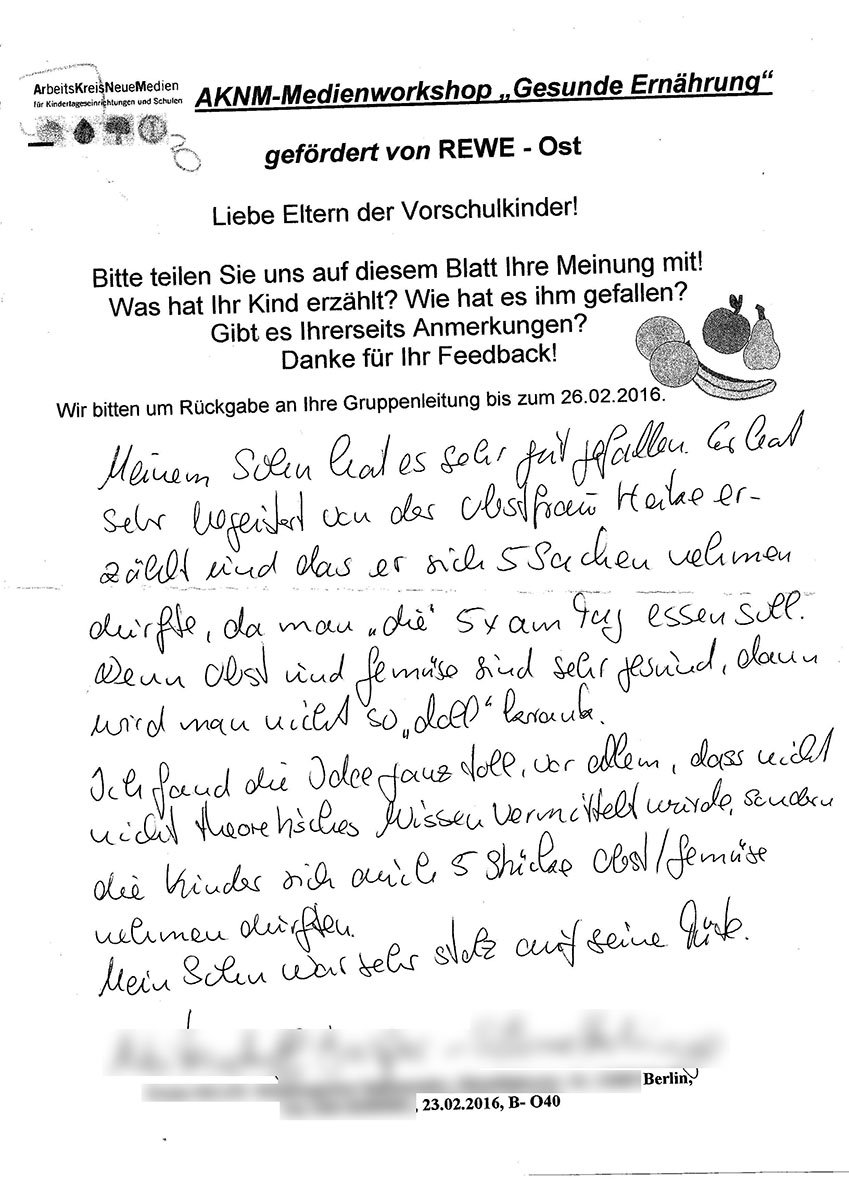 ArbeitsKreisNeueMedien
für Kindertageseinrichtungen und Schulen
AKNM-Medienworkshop „Gesunde Ernährung“
gefördert von REWE - Ost
Liebe Eltern der Vorschulkinder!
Bitte teilen Sie uns auf diesem Blatt Ihre Meinung mit!
Was hat Ihr Kind erzählt? Wie hat es ihm gefallen?
Gibt es Ihrerseits Anmerkungen?
Danke für Ihr Feedback!
Wir bitten um Rückgabe an Ihre Gruppenleitung bis zum 26.02.2016.
Meinem Sohn hat es sehr gut gefallen. Er hat
sehr begeistert von der Obstfrau Heike er-
zählt und das er sich 5 Sachen nehmen
dürfte, da man „die“ 5x am Tag essen soll.
Denn Obst und Gemüse sind sehr gesund, dann
wird man nicht so „doll“ krank.
Ich fand die Idee ganz toll, vor allem, dass nicht
nicht theoretisches Wissen vermittelt wurde, sondern
die Kinder sich auch 5 Stücke Obst/Gemüse
nehmen durften.
Mein Sohn war sehr stolz auf seine Tüte.
Berlin,
, 23.02.2016, B- O40